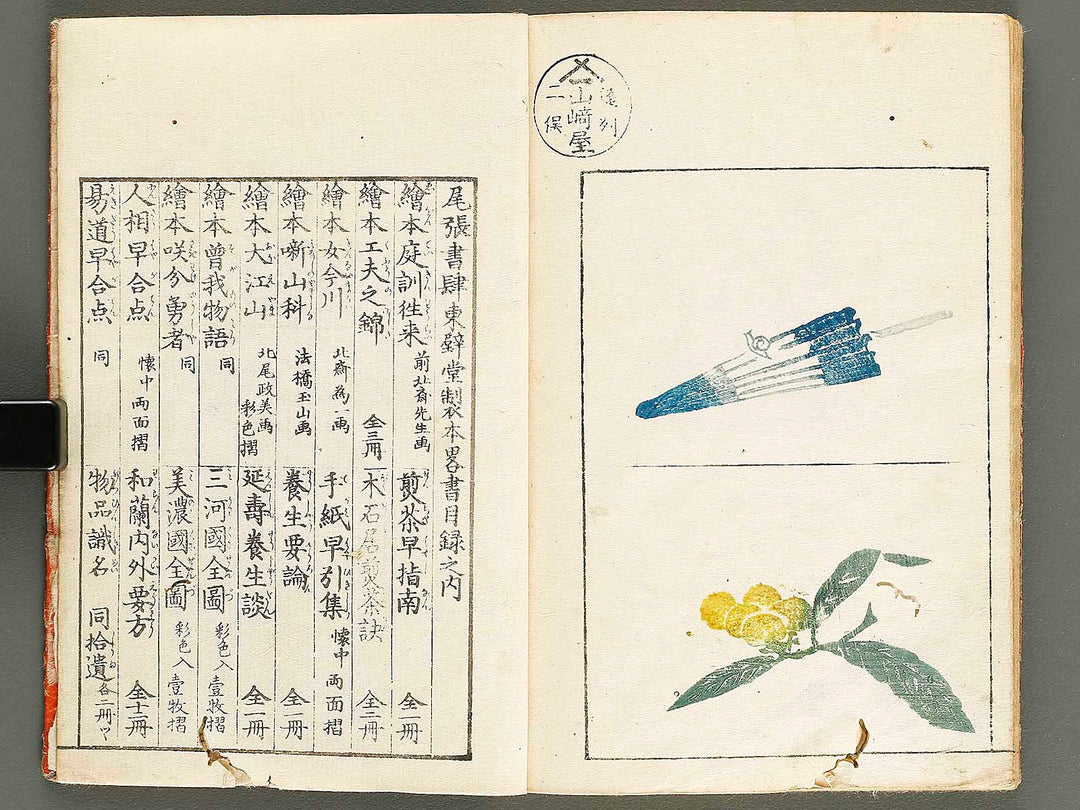 遠州
山﨑屋
二俣
尾張書肆東壁堂製本畧書目録之内
繪本庭訓徃来 前北斎先生画
繪本工夫之錦 全三冊
繪本女今川 北斎爲一画
繪本噺山科 法橋玉山画
繪本大江山 北尾政美画 彩色摺
繪本曽我物語 同
繪本咲分勇者 同
人相早合点 懐中両面摺
易道早合点 同
煎茶早指南 全一冊
木石居煎茶訣 全二冊
手紙早引集 懐中両面摺
養生要論 全一冊
延壽養生談 全一冊
三河國全圖 彩色入壹牧摺
美濃國全圖 彩色入壹牧摺
和蘭内外要方 全十二冊
物品識名 同拾遺 各二冊ツヽ